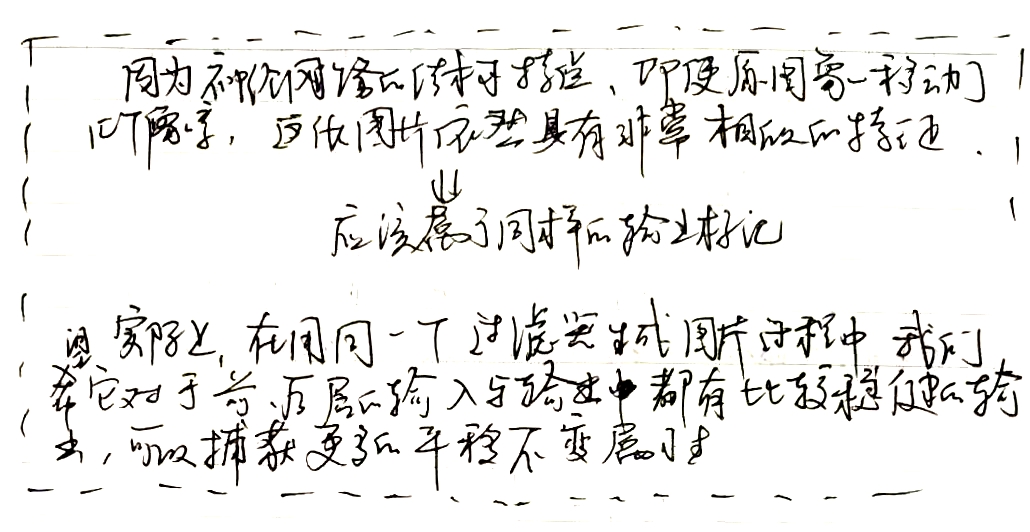 因为神经网络的结构特点，即使原图层一移动
几个像素，这张图片依然具有非常相似的特征.
⇓
应该属于同样的输出标记
实际上，在用同一个过滤器生成图片过程中 我们
希望它对于前、后层的输入与输出中都有比较稳健的输
出，可以捕获更多的平移不变属性